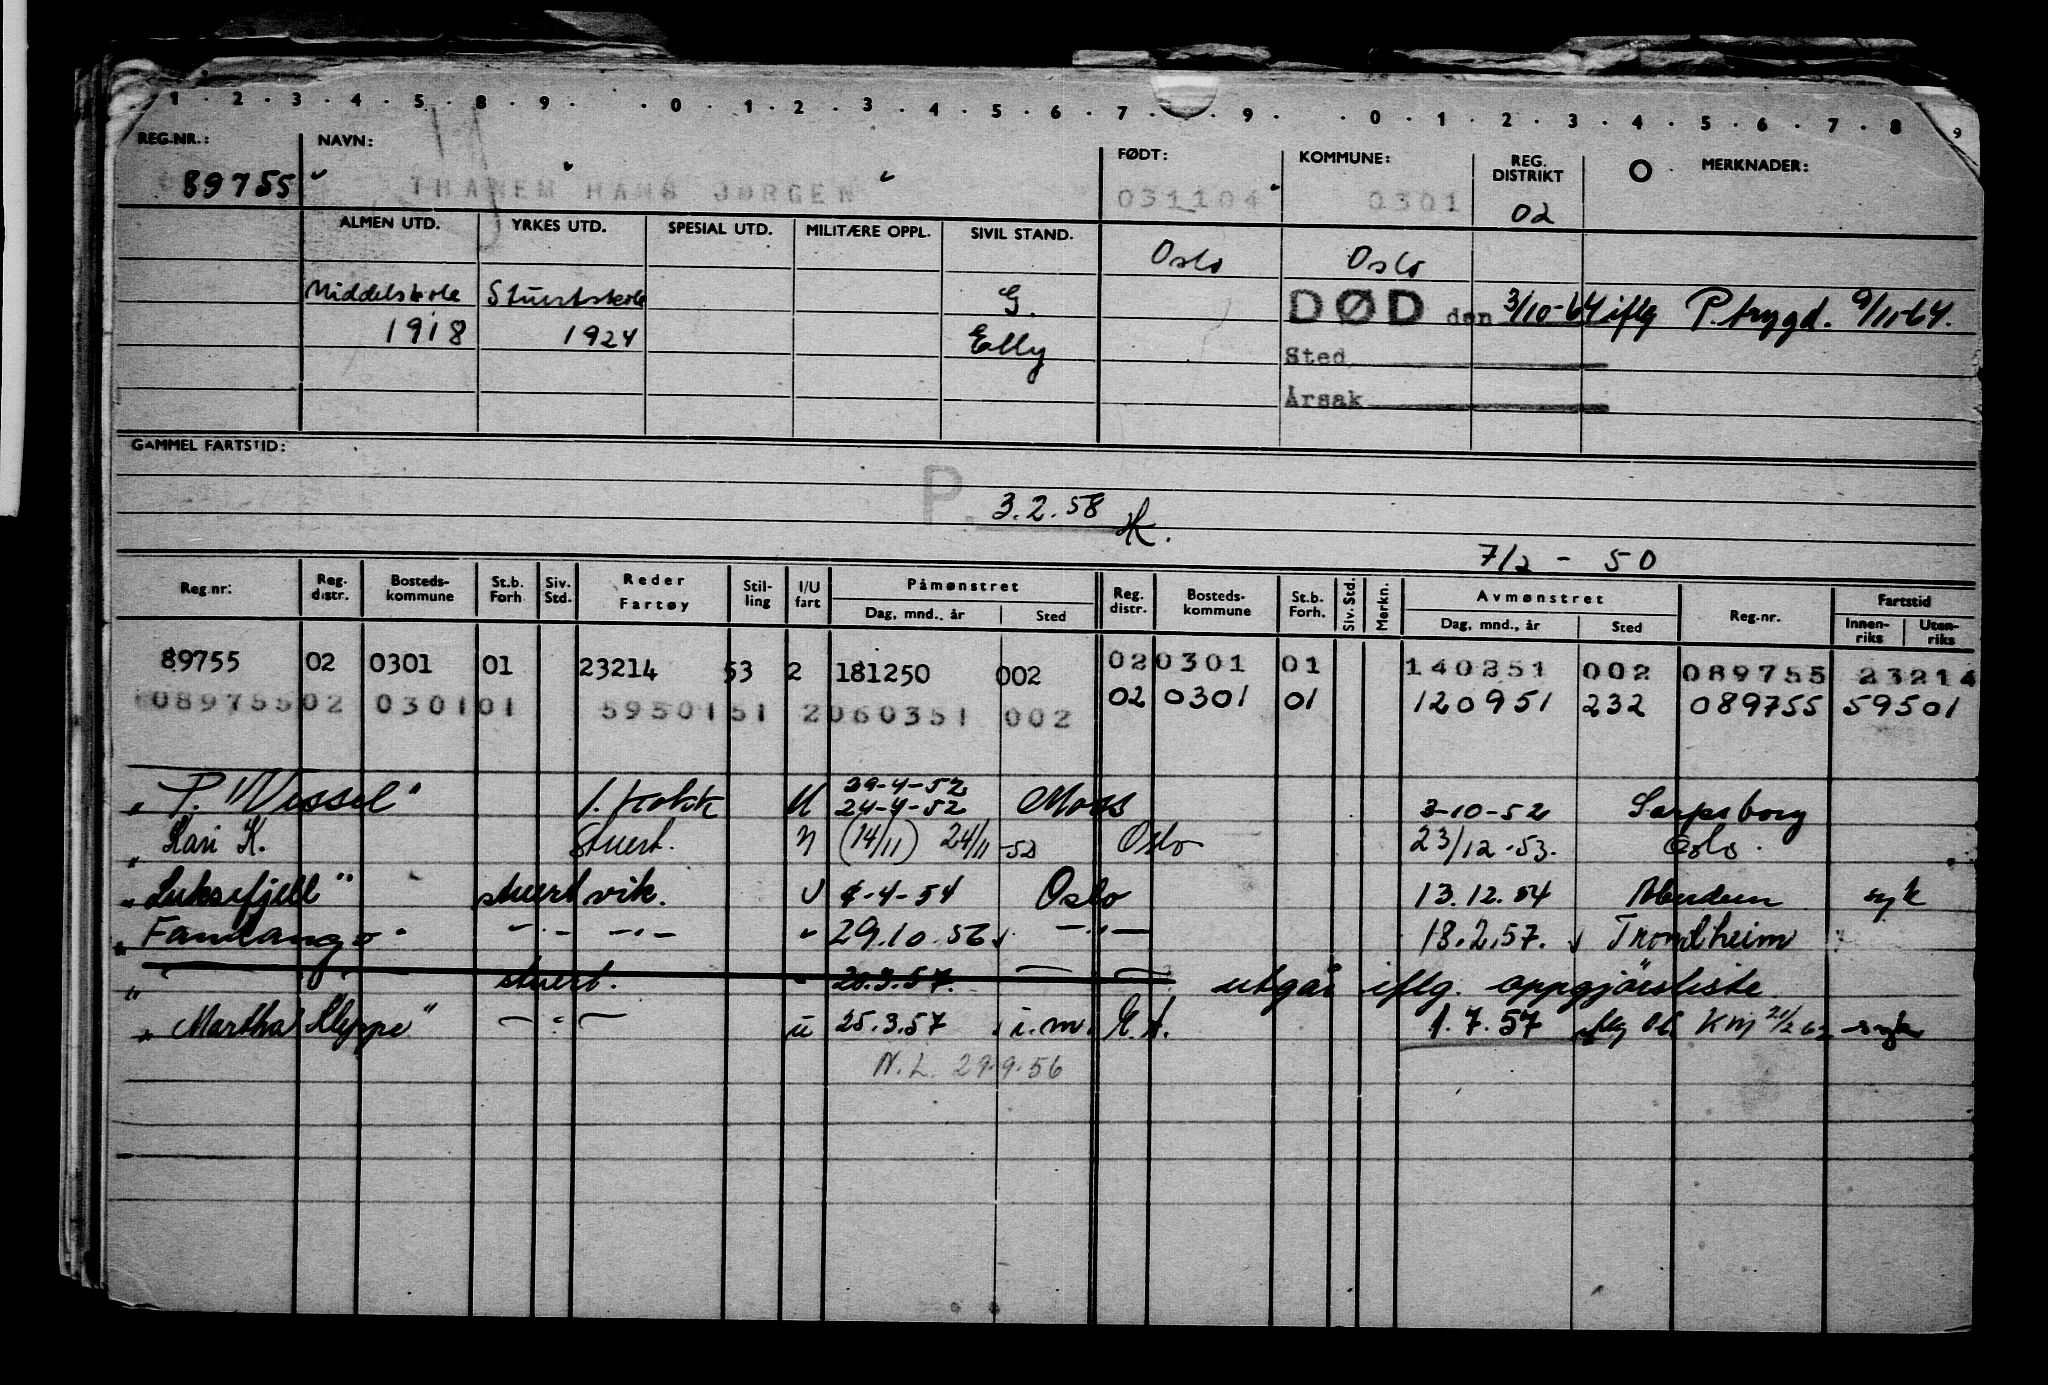 1 . 2 . 3 . 4 . 5 . 8 . 9 . . 0 . 1 . 2 . 3 . 4 . 5 . 6 . 7 . . 9 . . 0 . 1 . 2 . 3 . 4 . 5 . 6 . 7 . 8 9
REG.NR.: NAVN: FØDT: KOMMUNE: REG. DISTRIKT MERKNADER:
89755 THANEM HANS JØRGEN 031104 0301 02
ALMEN UTD. YRKES UTD. SPESIAL UTD. MILITÆRE OPPL. SIVIL STAND.
Oslo Oslo
Middelskole Stuertskole G. DØD den 3/10-64 iflg P.trygd. 9/11-64.
1918 1924 Elly Sted
Årsak
GAMMEL FARTSTID:
P. 3.2.58 K.
7/2 - 50
Reg.nr: Reg. distr. Bosteds-kommune St.b. Forh Siv. Std. Reder Fartøy Stil-ling I/U fart Påmønstret Reg. distr. Bosteds-kommune St.b. Forh. Siv. Std. Merkn. Avmønstret Reg.nr. Fartstid
Dag, mnd., år Sted Dag, mnd., år Sted Innen-riks Uten-riks
89755 02 0301 01 23214 53 2 181250 002 02 0301 01 140251 002 089755 23214
089755 02 0301 01 59501 51 2 060351 002 02 0301 01 120951 232 089755 59501
29-4-52
"P. Wessel" 1. kokk U 24-4-52 Moss 3-10-52 Sarpsborg
" Kari K. Stuert. N (14/11) 24/11-52 Oslo 23/12-53. Oslo.
"Luksefjell" stuert vik. U 4-4-54 Oslo 13.12.54 Aberdeen syk
"Fandango" -"- -"- " 29.10.56 -"- 18.2.57. Trondheim
" stuert. " 20.3.57. utgår iflg. oppgjørsliste
"Martha Kleppe" - " - u 25.3.57 i.m. 1.7.57 iflg 21/2 62
N.L. 29.9.56